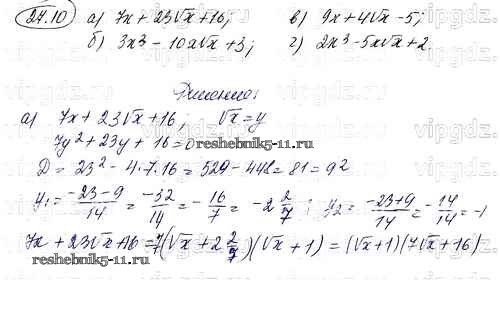 27.10 а) 7x + 23√x + 16; в) 9x + 4√x - 5;
б) 3x³ - 10x√x + 3; г) 2x³ - 5x√x + 2
Решение:
а) 7x + 23√x + 16; √x = y
7y² + 23y + 16 = 0
reshebnik5-11.ru
D = 23² - 4·7·16 = 529 - 448 = 81 = 9²
y₁ = -23-9/14 = -32/14 = -16/7 = -2 2/7; y₂ = -23+9/14 = -14/14 = -1
7x + 23√x + 16 = 7(√x + 2 2/7)(√x + 1) = (√x + 1)(7√x + 16)
reshebnik5-11.ru
vipgdz